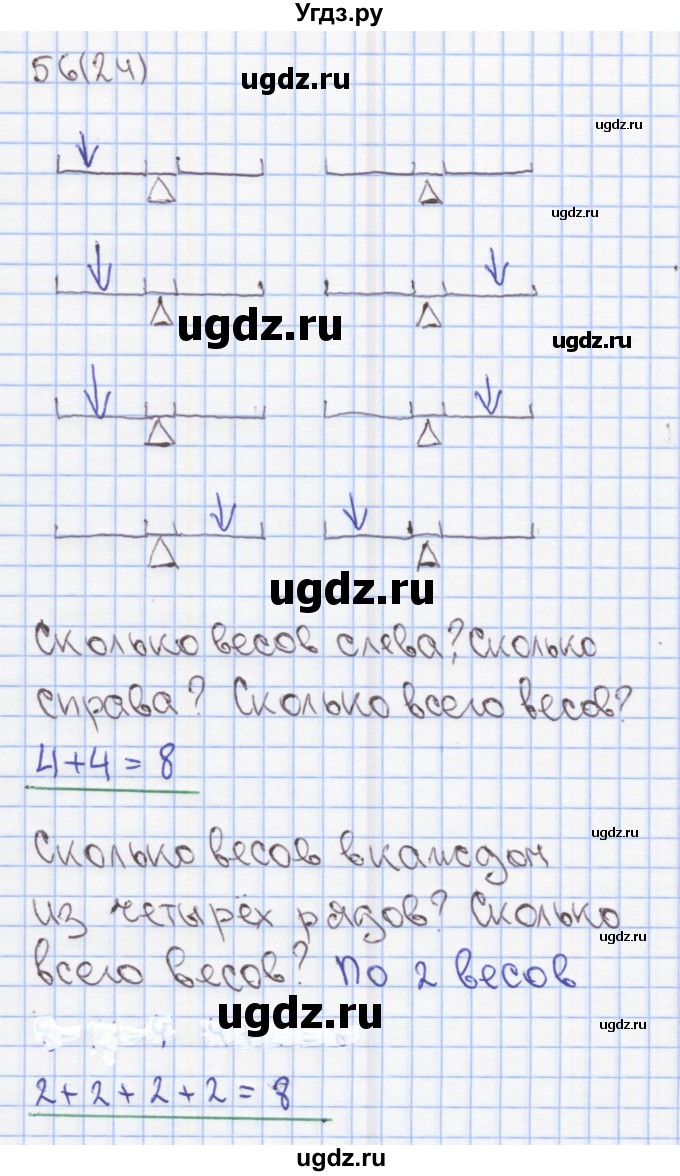 Угдз.ру
56(24)
ugdz.ru
ugdz.ru
ugdz.ru
ugdz.ru
ugdz.ru
ugdz.ru
Сколько весов слева? Сколько
справа? Сколько всего весов?
4+4=8
ugdz.ru
Сколько весов в каждом
из четырёх рядов? Сколько
ugdz.ru
всего весов? по 2 весов
ugdz.ru
ugdz.ru
2+2+2+2=8
ugdz.ru